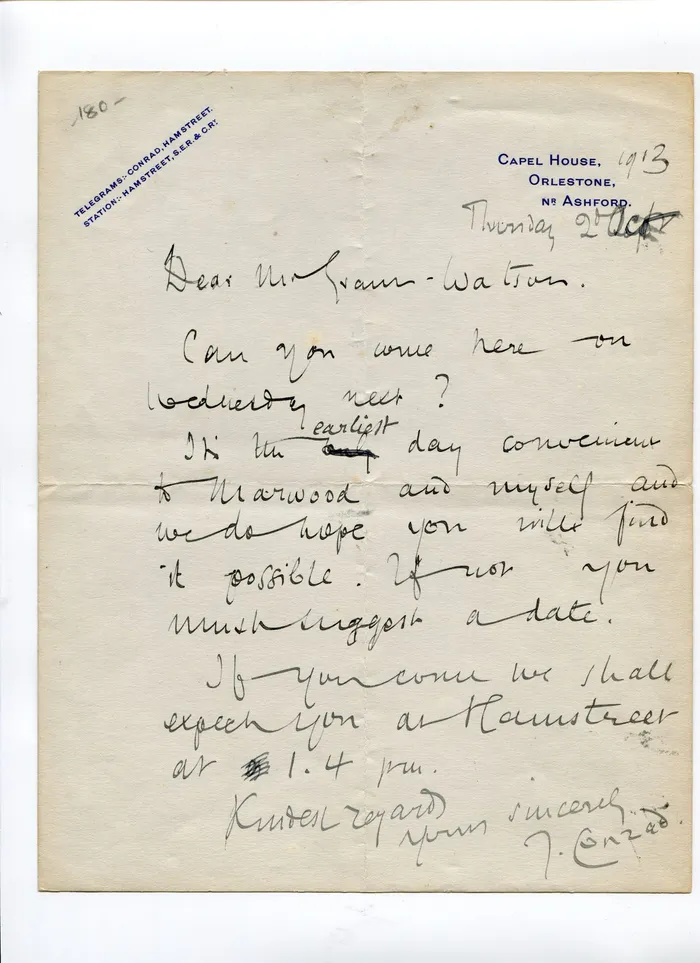 180-
TELEGRAMS:- CONRAD, HAMSTREET.
STATION:- HAMSTREET, S.E.R. & C.RY
CAPEL HOUSE, 1913
ORLESTONE,
NR ASHFORD.
Thursday 2d Oct
Dear Mr Grann-Watson.
Can you come here on
Wednesday next?
It's the earliest day convenient
to Marwood and myself and
we do hope you will find
it possible. If not you
must suggest a date.
If you come we shall
expect you at Hamstreet
at 1.4 pm.
Kindest regards
Yours sincerely
J. Conrad.